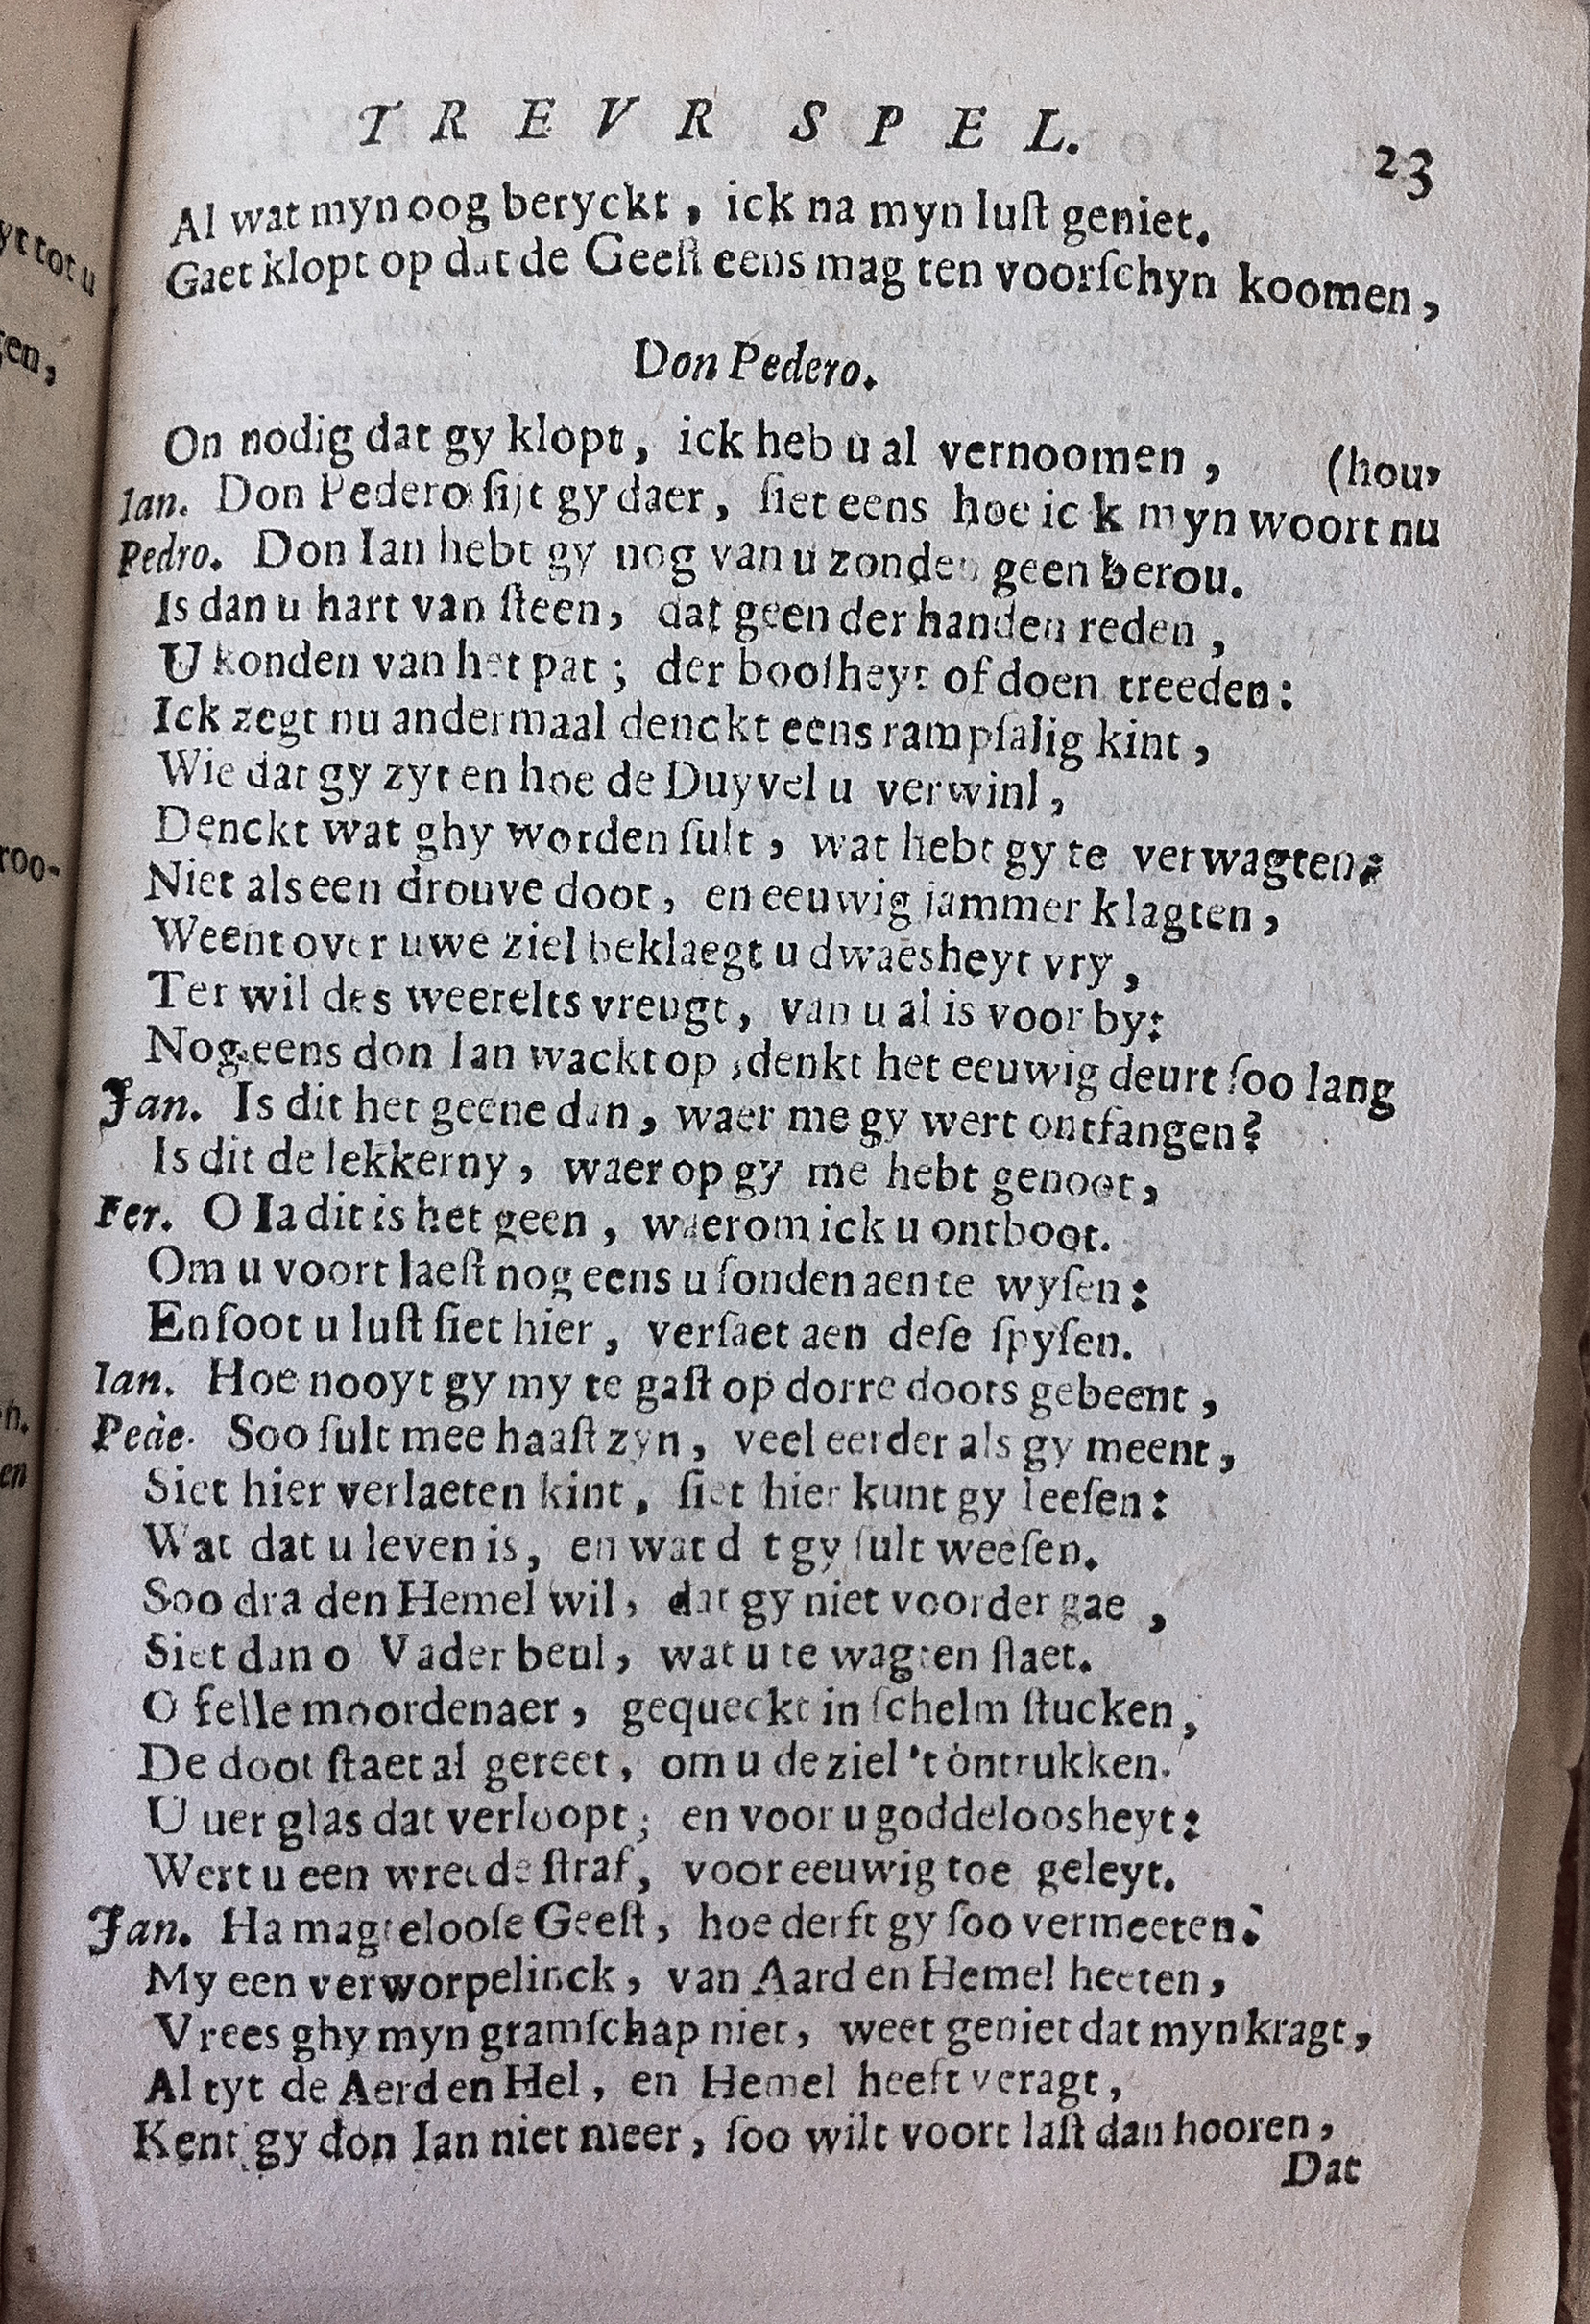 TREVR SPEL.
23
Al wat myn oog beryckt, ick na myn luſt geniet.
Gaet klopt op dat de Geeſt eens mag ten voorſchyn koomen,
Don Pedero.
On nodig dat gy klopt, ick heb u al vernoomen, (hou,
Ian. Don Pedero ſijt gy daer, ſiet eens hoe ick myn woort nu
Pedro. Don Ian hebt gy nog van u zonden geen berou.
Is dan u hart van ſteen, dat geen der handen reden,
U konden van het pat; der booſheyt of doen treeden:
Ick zegt nu andermaal denckt eens rampſalig kint,
Wie dat gy zyt en hoe de Duyvel u verwinl,
Denckt wat ghy worden ſult, wat hebt gy te verwagten;
Niet als een drouve doot, en eeuwig jammer klagten,
Weent over uwe ziel beklaegt u dwaesheyt vry,
Ter wil des weerelts vreugt, van u al is voor by:
Nog eens don Ian wackt op, denkt het eeuwig deurt ſoo lang
Jan. Is dit het geene dan, waer me gy wert ontfangen?
Is dit de lekkerny, waer op gy me hebt genoot,
Fer. O Ia dit is het geen, waerom ick u ontboot.
Om u voort laeſt nog eens u ſonden aen te wyſen:
En ſoot u luſt ſiet hier, verſaet aen deſe ſpyſen.
Ian. Hoe nooyt gy my te gaſt op dorre doots gebeent,
Pede. Soo ſult mee haaſt zyn, veel eerder als gy meent,
Siet hier verlaeten kint, ſiet hier kunt gy leeſen:
Wat dat u leven is, en wat d t gy ſult weeſen.
Soo dra den Hemel wil, dat gy niet voorder gae,
Siet dan o Vader beul, wat u te wagten ſtaet.
O felle moordenaer, gequeckt in ſchelm ſtucken,
De doot ſtaet al gereet, om u de ziel 't ontrukken.
U uer glas dat verloopt; en voor u goddeloosheyt:
Wert u een wreede ſtraf, voor eeuwig toe geleyt.
Jan. Ha magtelooſe Geeſt, hoe derft gy ſoo vermeeten:
My een verworpelinck, van Aard en Hemel heeten,
Vrees ghy myn gramſchap niet, weet geniet dat myn kragt,
Al tyt de Aerd en Hel, en Hemel heeft veragt,
Kent gy don Ian niet meer, ſoo wilt voort laſt dan hooren,
Dat
yt tot u
gen,
roo-
n.
en